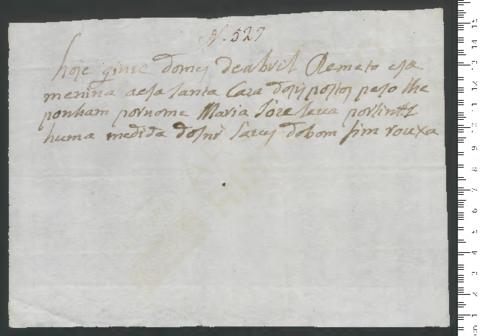 N. 527
hoje quize domes de abril Remeto esa
menina aesa santa Caza dos is postos peso lhe
ponham por nome Maria Joze leva por sinal
huma medida do snr Jarcy do bom fim rouxa